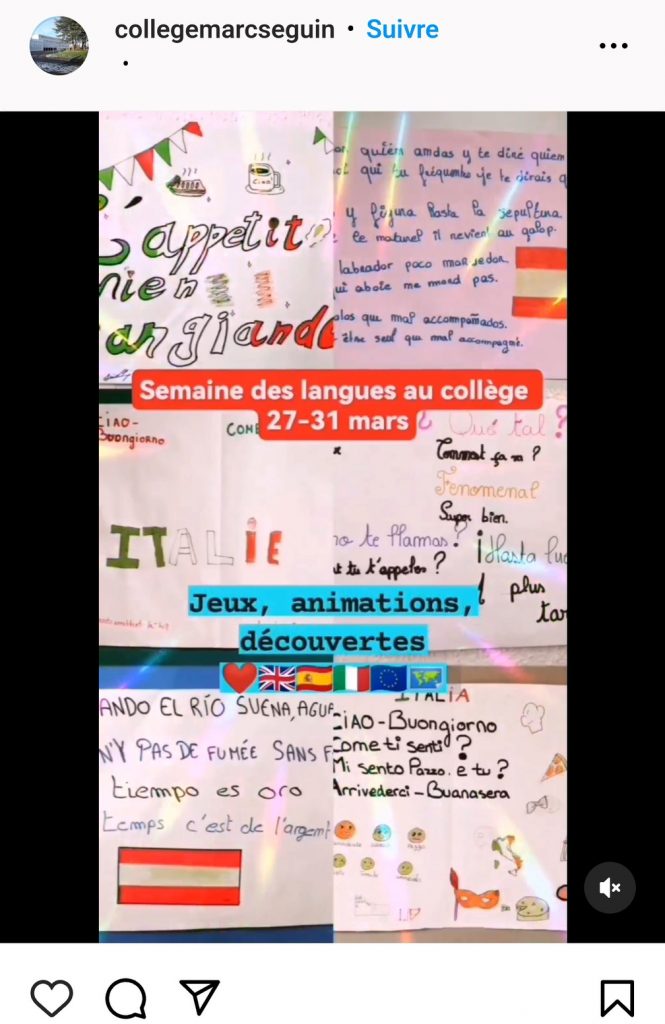 collegemarcseguin • Suivre
L'appetito
vien
mangiando
quién amdas y te diré quiem
qui tu fréquentes je te dirais q
y figura hasta la sepultura
le naturel il revient au galop.
labrador poco mordedor.
qui aboie ne mord pas.
solos que mal accompañados.
être seul que mal accompagné.
Semaine des langues au collège
27-31 mars
CIAO-
Buongiorno
COME
ITALIE
Qué tal?
Comment ça va ?
Fenomenal
Super bien.
te llamas?
tu t'appeles ?
¡Hasta lue
plus
tar
Jeux, animations,
découvertes
❤️🇬🇧🇪🇸🇮🇹🇪🇺🗺️
ANDO EL RÍO SUENA, AGUA
N'Y PAS DE FUMÉE SANS F
tiempo es oro
temps c'est de l'argent
ITALIA
CIAO-Buongiorno
Come ti senti ?
Mi sento Pazzo. e tu ?
Arrivederci-Buanasera